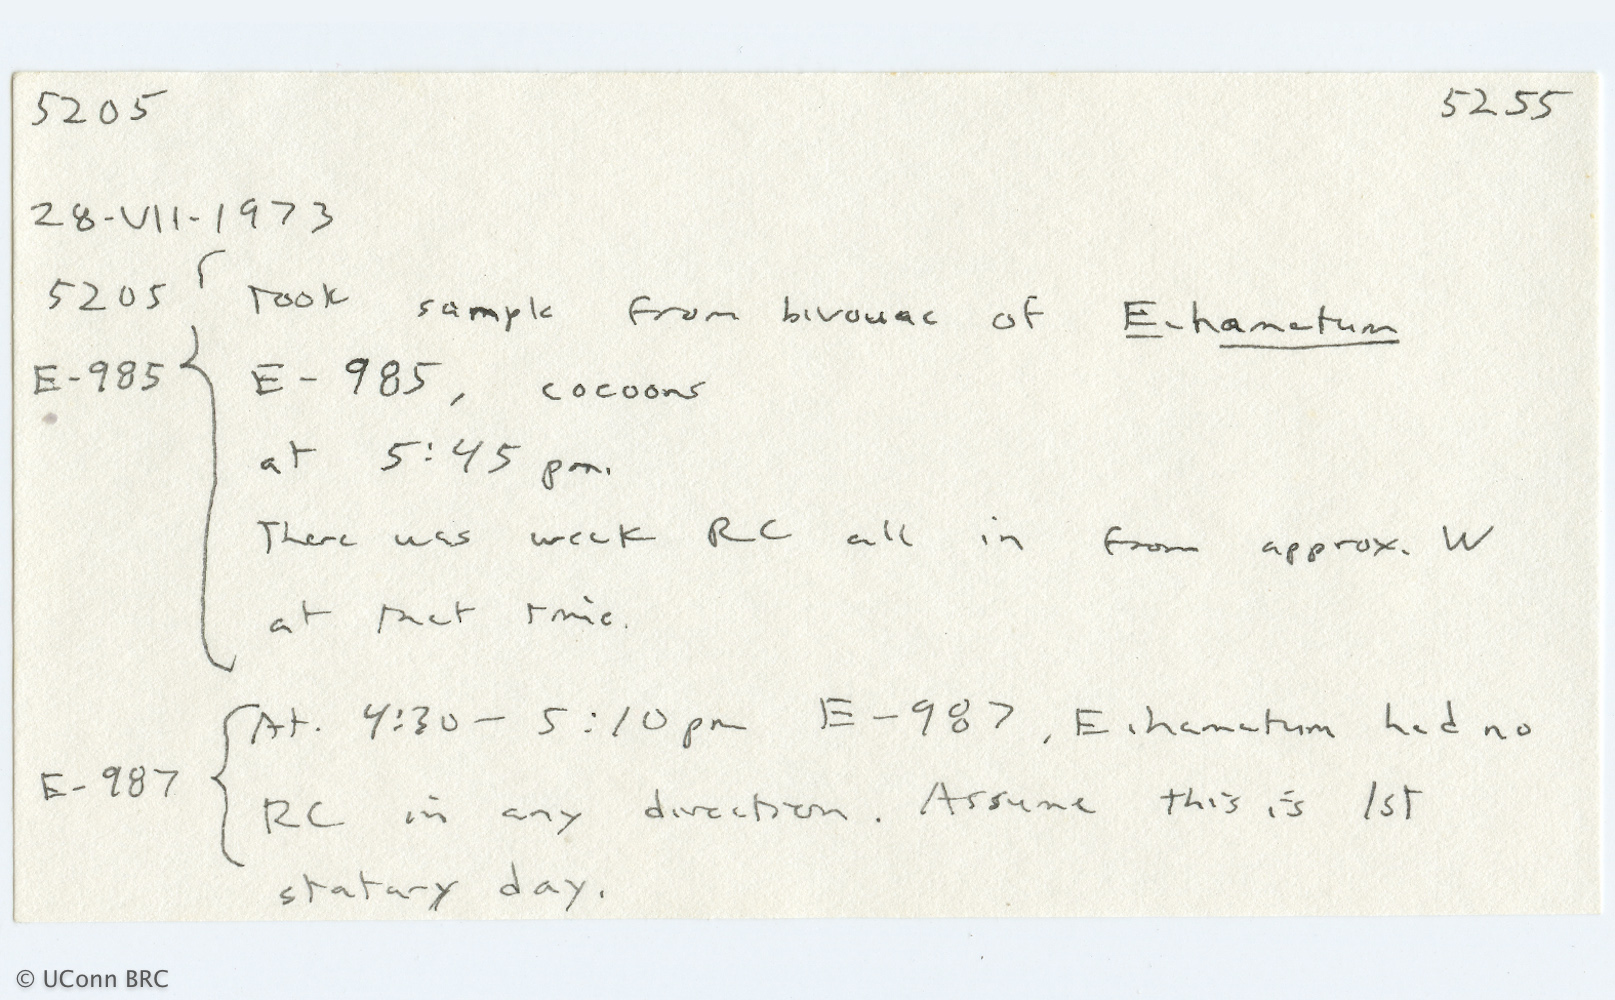 5205 5255
28-VII-1973
5205 Took sample from bivouac of E. hamatum
E-985 E-985, cocoons
at 5:45 pm.
There was weak RC all in from approx. W
at that time.
At. 4:30 - 5:10 pm E-987, E. hamatum had no
E-987 RC in any direction. Assume this is 1st
statary day.
© UConn BRC